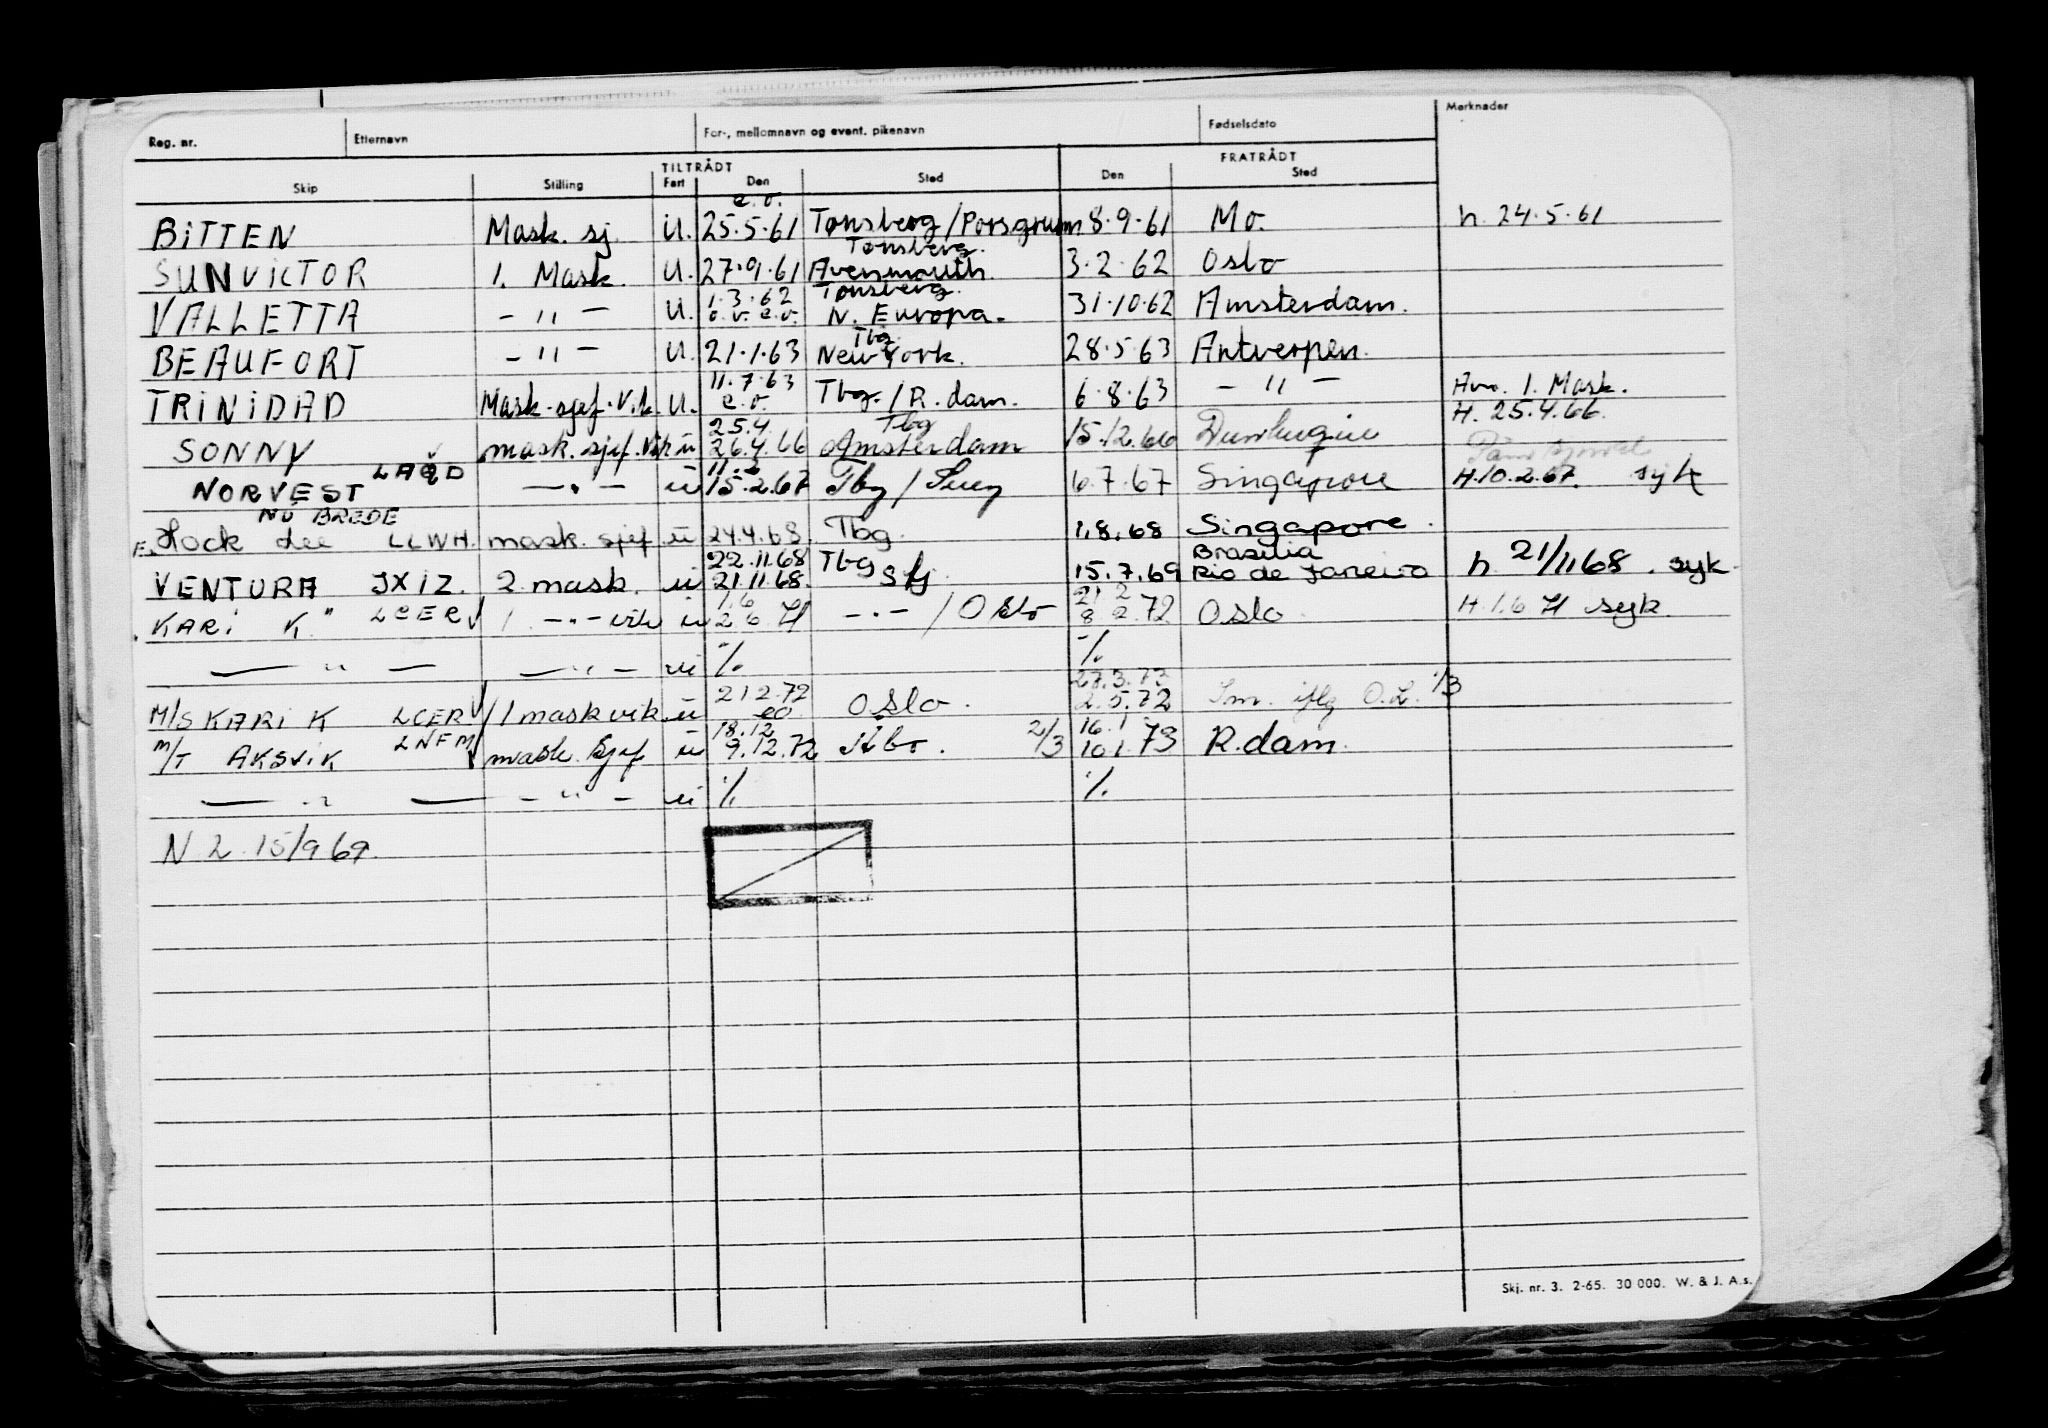 Reg. nr. Etternavn For-, mellomnavn og event. pikenavn Fødselsdato Merknader
TILTRÅDT FRATRÅDT
Skip Stilling Fart Den Sted Den Sted
e.o.
BITTEN Mask. sj. U. 25.5.61 Tønsberg/Porsgrunn 8.9.61 Mo. h. 24.5.61
Tønsberg.
SUNVICTOR 1. Mask. U. 27.9.61 Avenmouth. 3.2.62 Oslo
1.3.62 Tønsberg.
VALLETTA - " - U. o.v. e.o. N. Europa. 31.10.62 Amsterdam.
Tbg.
BEAUFORT - " - U. 21.1.63 New York. 28.5.63 Antverpen.
11.7.63
TRINIDAD Mask.sjef.Vik. U. e.o. Tbg./R.dam. 6.8.63 - " - 1. Mask.
H. 25.4.66.
25.4. Tbg
SONNY mask.sjef.Vik ü 26.4.66 Amsterdam 15.12.66
11.2
NORVEST LAQD - " - ü 15.2.67 Tbg / Suez 6.7.67 Singapore H.10.2.67. syk
NÚ BREDE
Hock Lee LLWH. mask. sjef ü 24.4.68 Tbg. 1.8.68 Singapore.
22.11.68 Brasilia
VENTURA JXIZ. 2. mask. ü 21.11.68. Tbg Sfj. 15.7.69 Rio de Janeiro h. 21/11.68. syk.
1.6 21 2
"KARI K" LCER 1. - " - vik ü 2 6 71 - " - / Oslo 8 2 72 Oslo. H. 1.6 71 syk.
— " — — " — ü %. %.
21 2.72 27.3.73
M/S KARI K LCER 1 mask vik. ü eo Oslo. 2.5.72 O.L. 1/3
18.12 16.1
M/T AKSVIK LNFM mask. Sjef ü 9.12.72 Åbo. 2/3 10 1.73 R.dam.
— " — - " - ü %. %.
N 2 15/9 69.
Skj. nr. 3. 2-65. 30 000. W. & J. A.s.